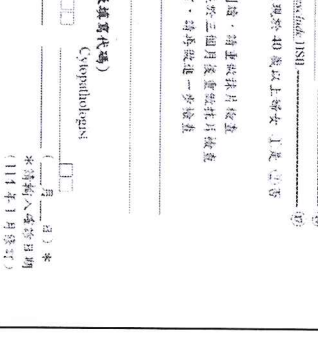 HSIL (17)
40 歲以上婦女 是 否
，請重做抹片檢查
於三個月後重做抹片檢查
，請再做進一步檢查
填寫代碼）
Cytopathologist
（ 月 日）※
※請輸入實際日期
（114 年 1 月修訂）